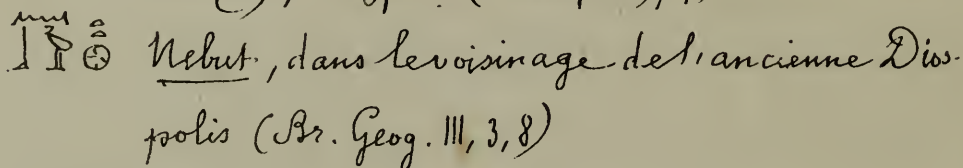 Nebut., dans le voisinage de l'ancienne Dios-
polis (Br. Geog. III, 3, 8)